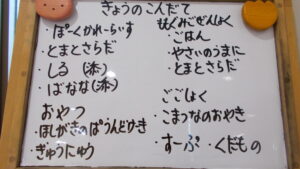 きょうのこんだて
・ぽーくかれーらいす
・とまとさらだ
・しる(添)
・ばなな(添)
おやつ
・ほしがきのぱうんどけーき
・ぎゅうにゅう
もぐみごぜんしょく
・ごはん
・やさいのうまに
・とまとさらだ
ごごしょく
・こまつなのおやき
・すーぷ ・くだもの